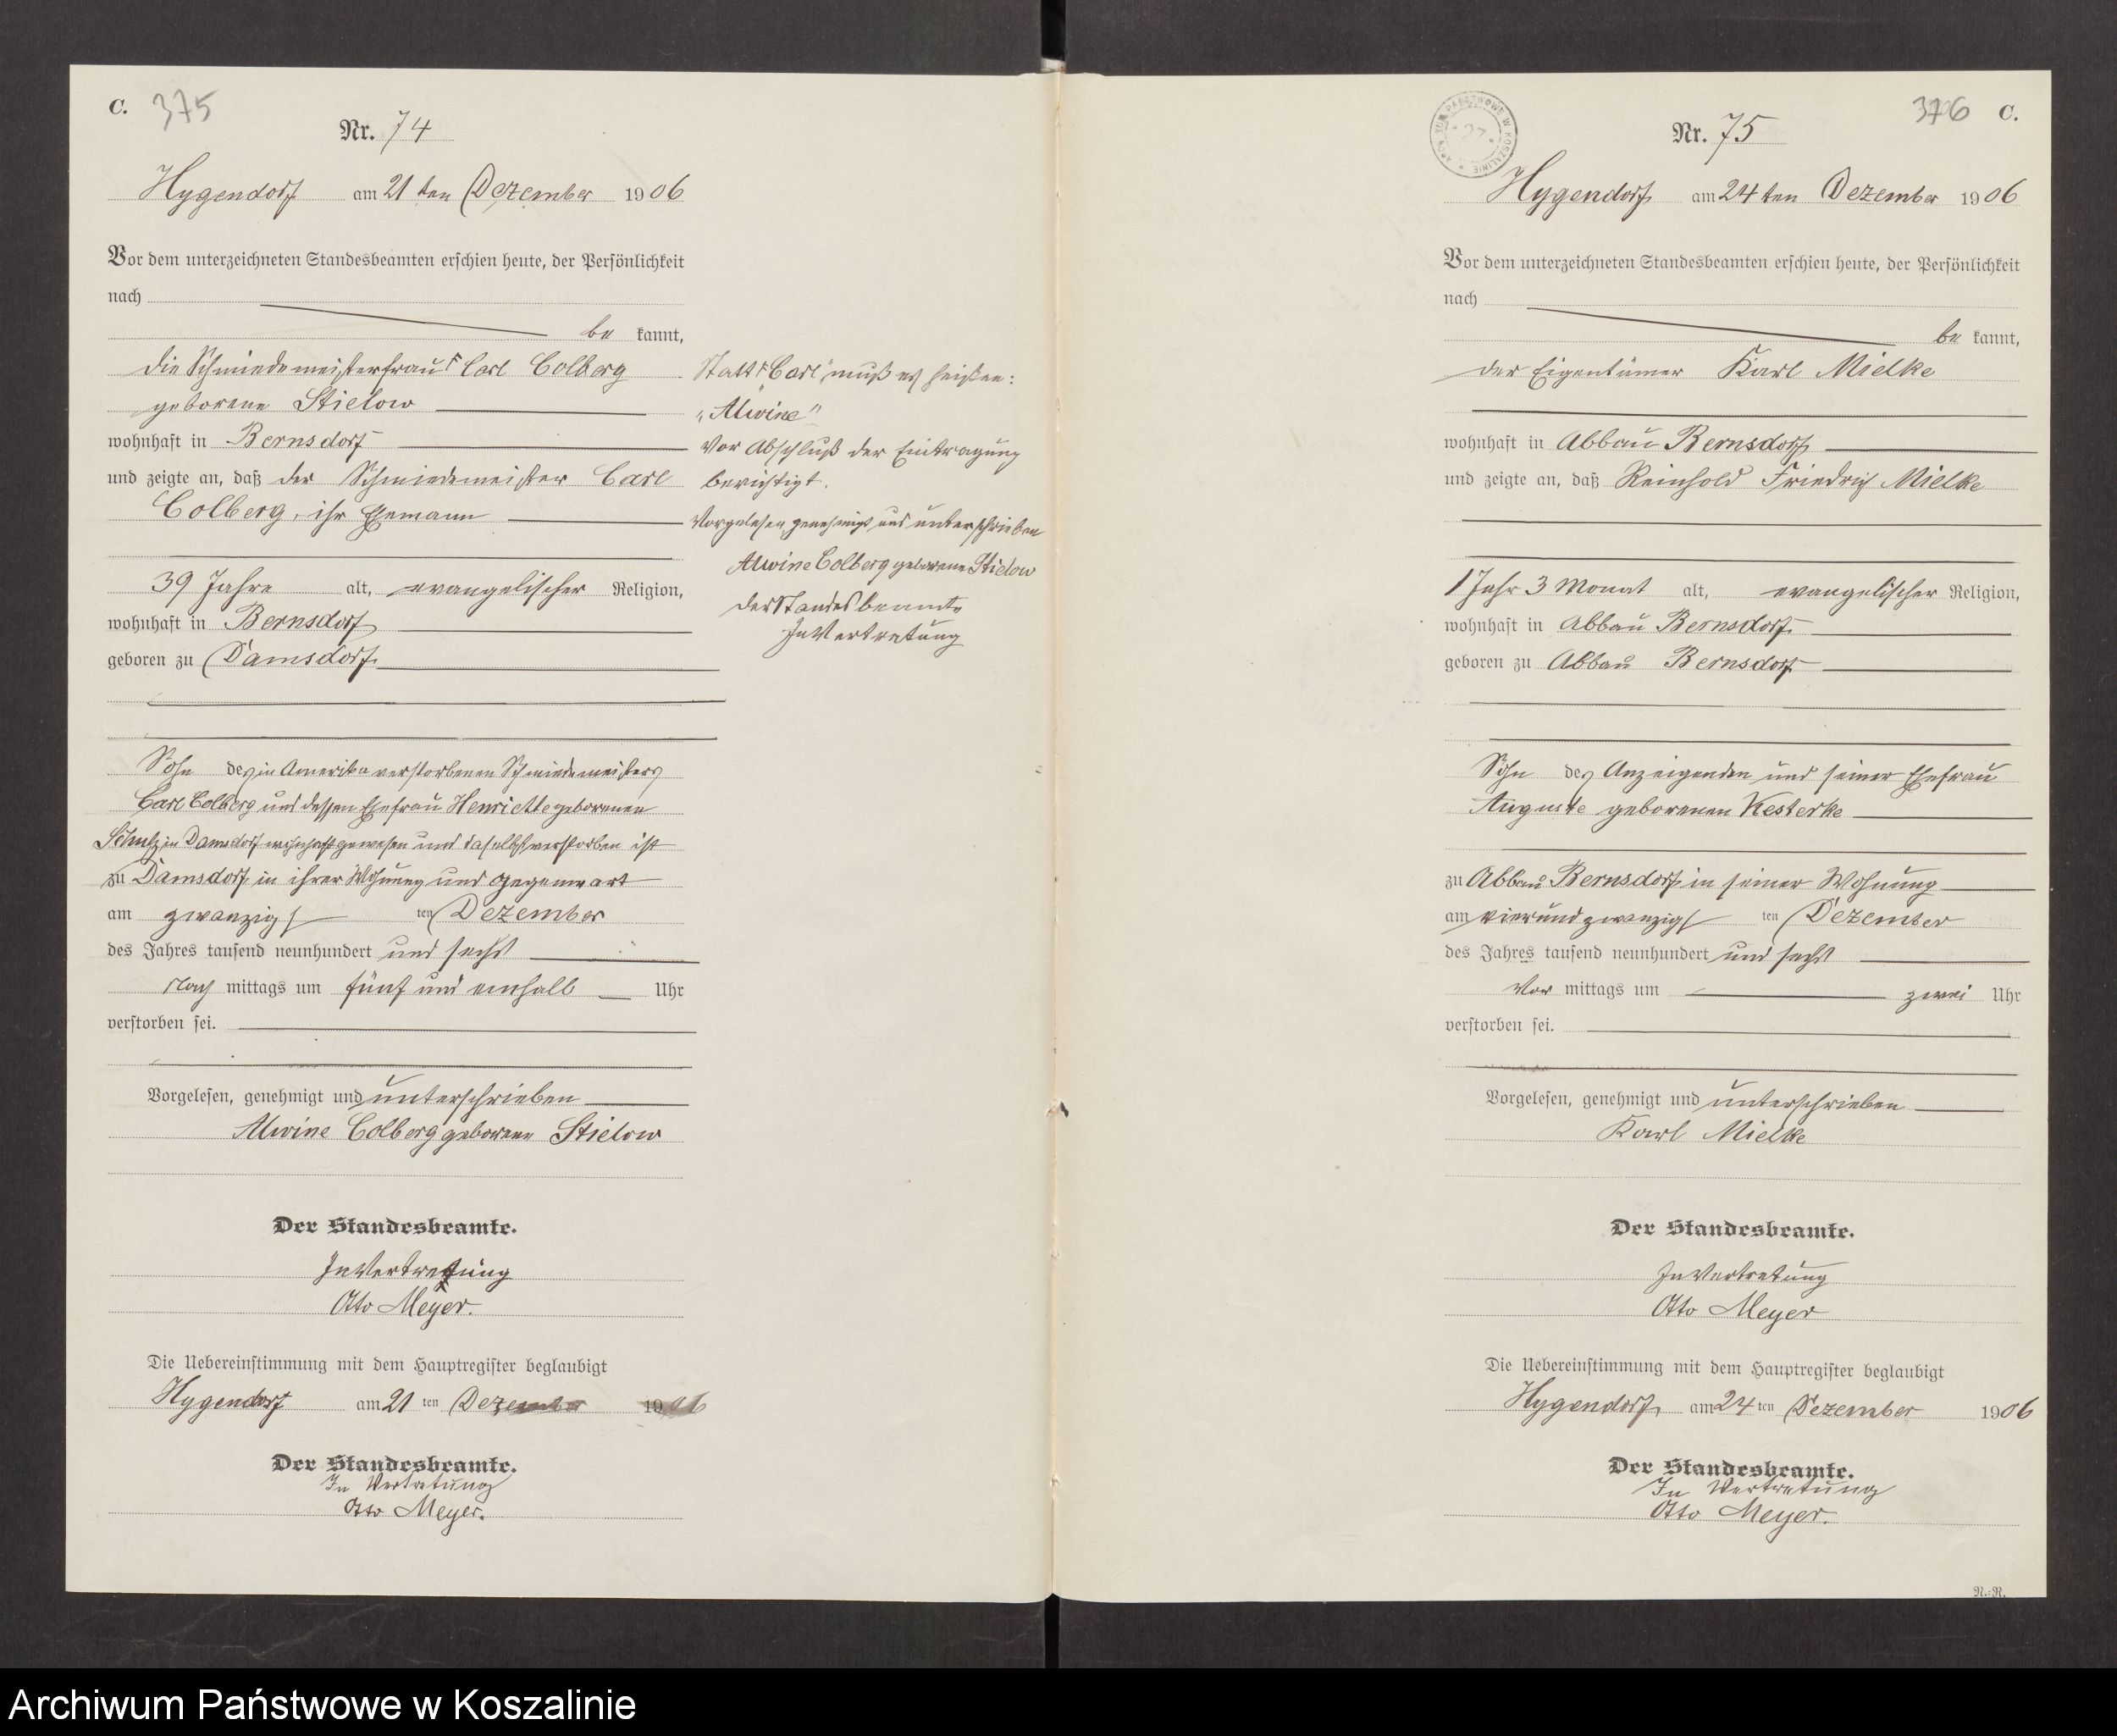 C. 375
Nr. 74
Hygendorf am 21ten Dezember 1906
Vor dem unterzeichneten Standesbeamten erschien heute, der Persönlichkeit
nach
be kannt,
die Schmiedemeisterfrau Carl Colberg
geborene Stielow
wohnhaft in Bernsdorf
und zeigte an, daß der Schmiedemeister Carl
Colberg, ihr Ehemann
39 Jahre alt, evangelischer Religion,
wohnhaft in Bernsdorf
geboren zu Damsdorf
Sohn des in Amerika verstorbenen Schmiedemeisters
Carl Colberg und dessen Ehefrau Henriette geborenen
Schulz in Damsdorf wohnhaft gewesen und daselbst verstorben ist
zu Damsdorf in ihrer Wohnung und Gegenwart
am zwanzigsten Dezember
des Jahres tausend neunhundert und sechs
Nach mittags um fünf und einhalb Uhr
verstorben sei.
Vorgelesen, genehmigt und unterschrieben
Alwine Colberg geborene Stielow
Der Standesbeamte.
In Vertretung
Otto Meyer.
Die Uebereinstimmung mit dem Hauptregister beglaubigt
Hygendorf am 21ten Dezember 1906
Der Standesbeamte.
In Vertretung
Otto Meyer.
Statt "Carl" muß es heißen:
„Alwine"
Vor Abschluß der Eintragung
berichtigt.
Vorgelesen genehmigt und unterschrieben
Alwine Colberg geborene Stielow
Der Standesbeamte
In Vertretung
376 C.
Nr. 75
Hygendorf am 24ten Dezember 1906
Vor dem unterzeichneten Standesbeamten erschien heute, der Persönlichkeit
nach
be kannt,
der Eigentümer Karl Mielke
wohnhaft in Abbau Bernsdorf
und zeigte an, daß Reinhold Friedrich Mielke
1 Jahr 3 Monat alt, evangelischer Religion,
wohnhaft in Abbau Bernsdorf
geboren zu Abbau Bernsdorf
Sohn des Anzeigenden und seiner Ehefrau
Auguste geborenen Kesterke
zu Abbau Bernsdorf in seiner Wohnung
am vierundzwanzigsten Dezember
des Jahres tausend neunhundert und sechs
Vor mittags um zwei Uhr
verstorben sei.
Vorgelesen, genehmigt und unterschrieben
Karl Mielke
Der Standesbeamte.
In Vertretung
Otto Meyer
Die Uebereinstimmung mit dem Hauptregister beglaubigt
Hygendorf, am 24ten Dezember 1906
Der Standesbeamte.
In Vertretung
Otto Meyer.
R.-R.
Archiwum Państwowe w Koszalinie